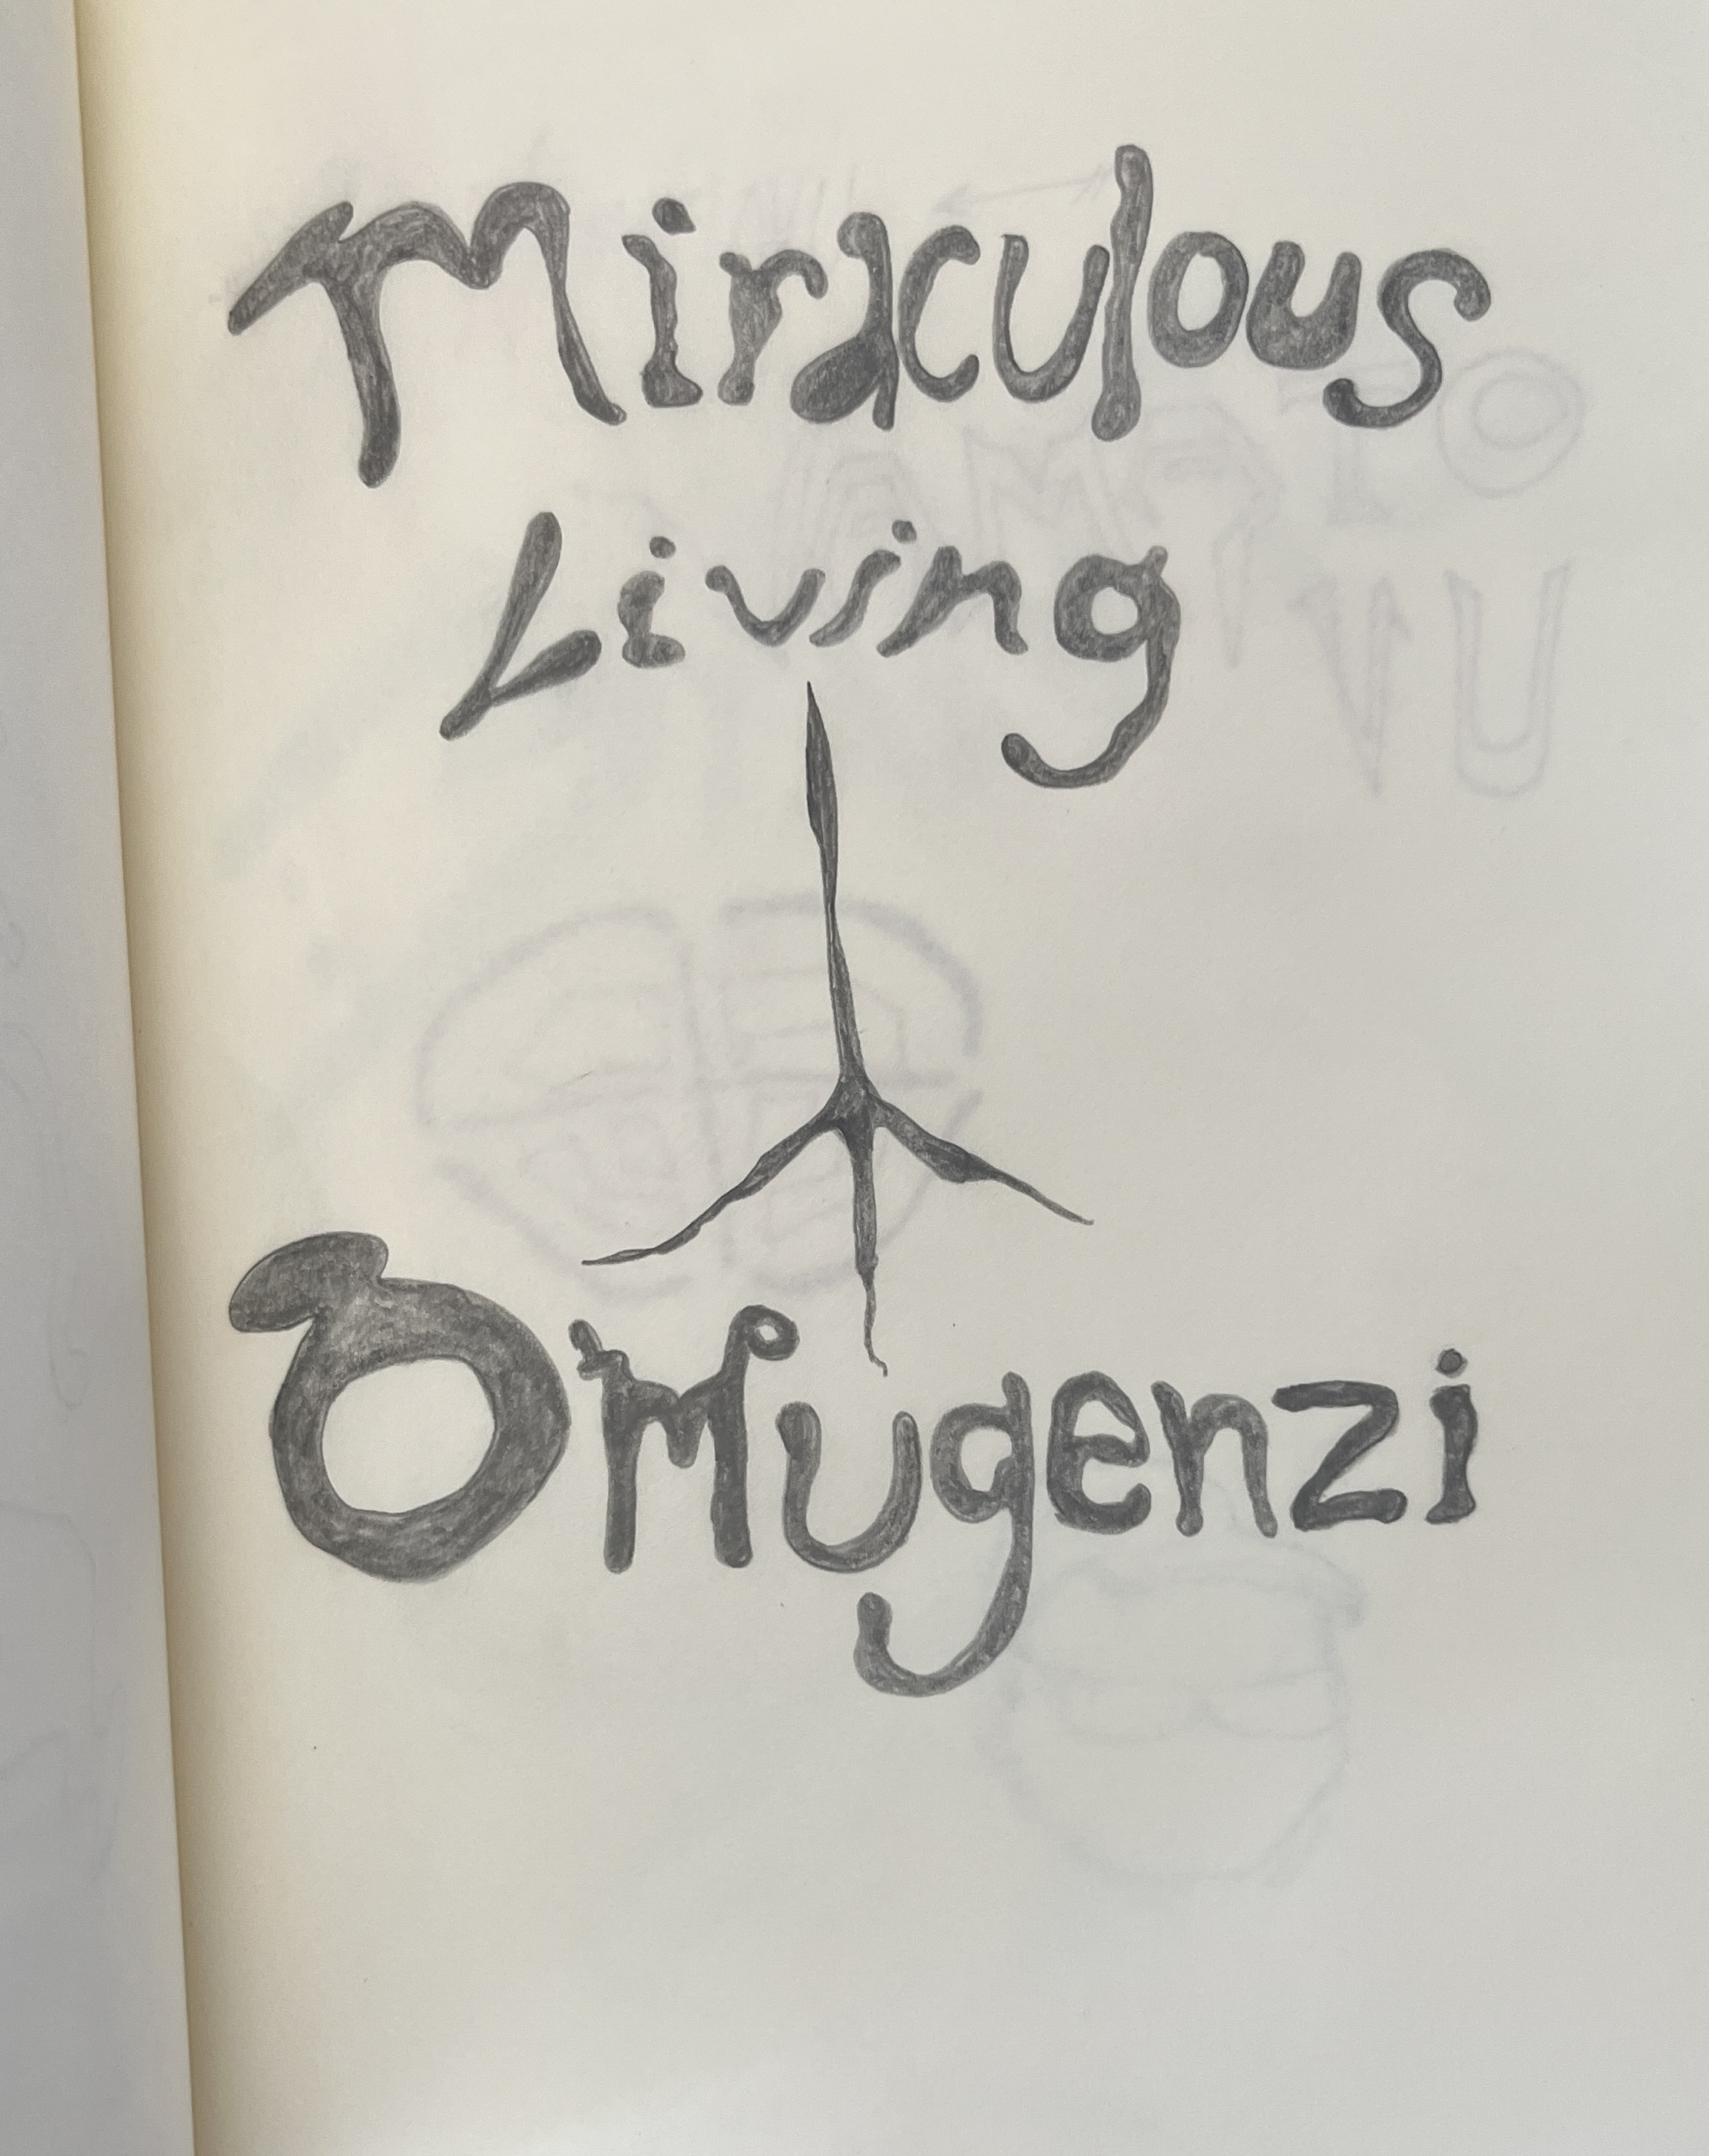 Miraculous
Living
OMugenzi